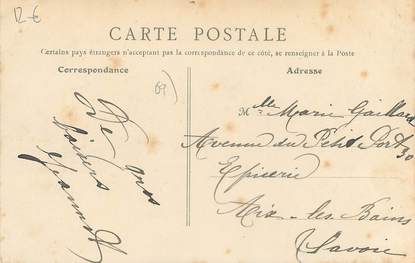 12 €
CARTE POSTALE
Certains pays étrangers n'acceptant pas la correspondance de ce côté, se renseigner à la Poste
Correspondance
69)
De gros
baisers
Adresse
Mlle Marie Gaillard
Avenue du Petit Port 30
Epicerie
Aix-les-Bains
Savoie